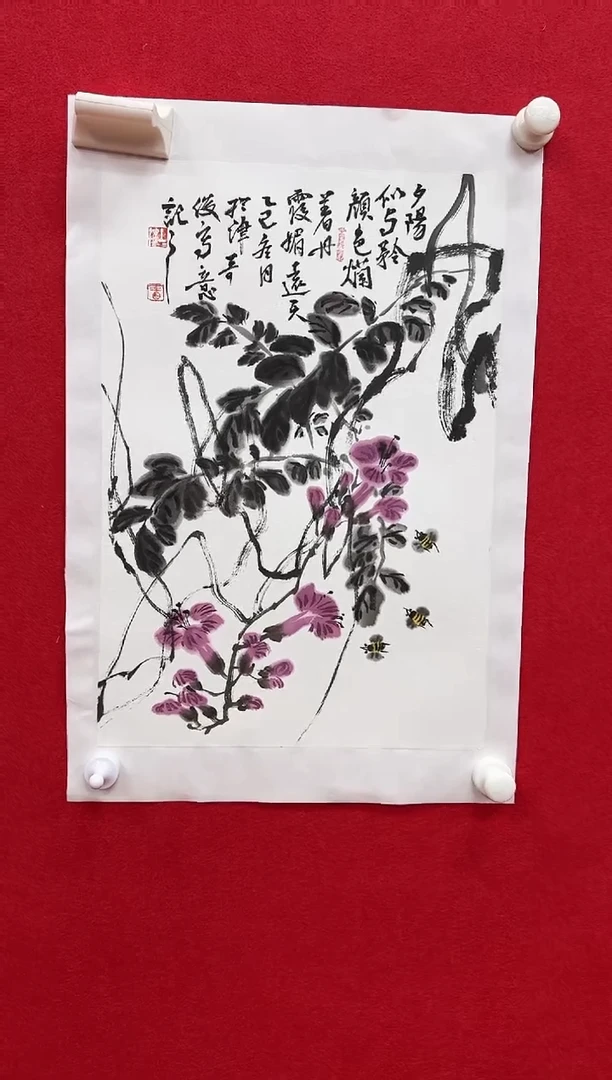 夕陽
似与矜
顏色爛
著丹
霞媚遠天
乙巳冬月
於津奇
後寫意
記之